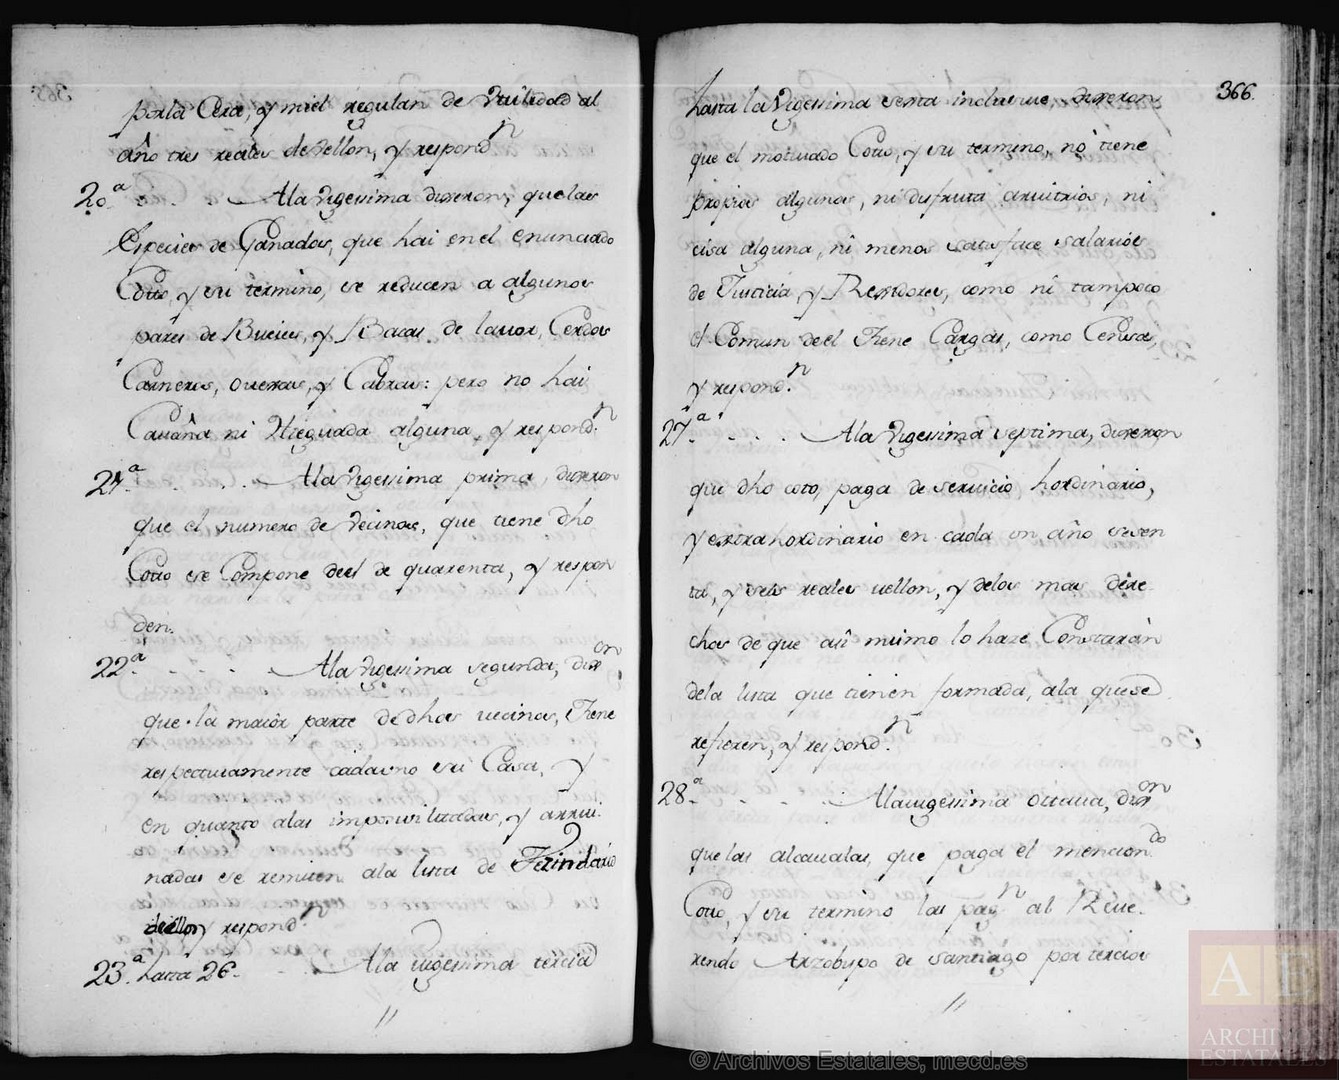 por la Cera, y miel regulan de Vtilidad al
año tres reales de Vellon, y respondn
20a . . . Ala Vigessima dixeron, que las
Especies de Ganados, que hai en el enunciado
Coto, y su termino, se reducen a algunos
pares de Bueies, y Bacas de lauor, Cerdos
Carneros, ouexas, y Cabras: pero no hai
Cauaña ni Yeguada alguna, y respondn.
21a . . . Ala Vigessima prima, dixeron
que el numero de Vecinos, que tiene dho
Coto se Compone deel de quarenta, y respon
den.
22a . . . Ala Vigessima segunda, dixon
que la maior parte de dhos vecinos, Tiene
respectiuamente cadauno su Casa, y
en quanto alas imposiuilitadas, y arrui.
nadas se remiten ala lista de Vezindario
dellos y respondn.
23a hasta 26. . . Ala uigessima tercia
//
366.
hasta la Vigessima sexta inclusiue, dixeron
que el motiuado Coto, y su termino, no tiene
propios algunos, ni disfruta aruitrios, ni
sisa alguna, ni menos satisface salarios
de Justicia, y Rexidores, como ni tampoco
el Comun deel Tiene Cargas, como Censos,
y respondn.
27a . . . Ala Vigessima septima, dixeron
que dho coto, paga de seruicio hordinario,
y extrahordinario en cada vn año sesen
ta, y seis reales vellon, y delos mas dere-
chos de que asi mismo lo haze, Constarán
dela lista que tienen formada, ala que se
refieren, y respondn.
28a . . . Ala uigessima octaua, dixon
que las alcaualas, que paga el menciondo
Coto, y su termino las pagn al Reue.
rendo Arzobispo de Santiago por tercios
//
© Archivos Estatales, mecd.es
A E
ARCHIVOS
ESTATALES